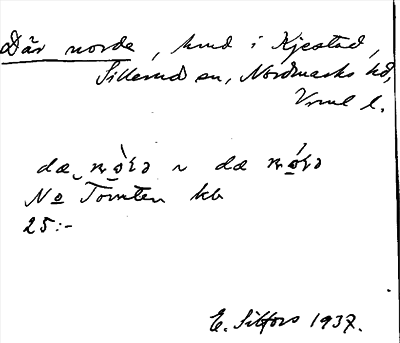 Där norde, hmd i Kjestad,
Sillerud sn, Nordmarks hd,
Vrml l.
dæ nǫ̀ꞎə ~ dæ nǫ́ꞎə
No Tomten kb
25:-
E. Sitfors 1937.